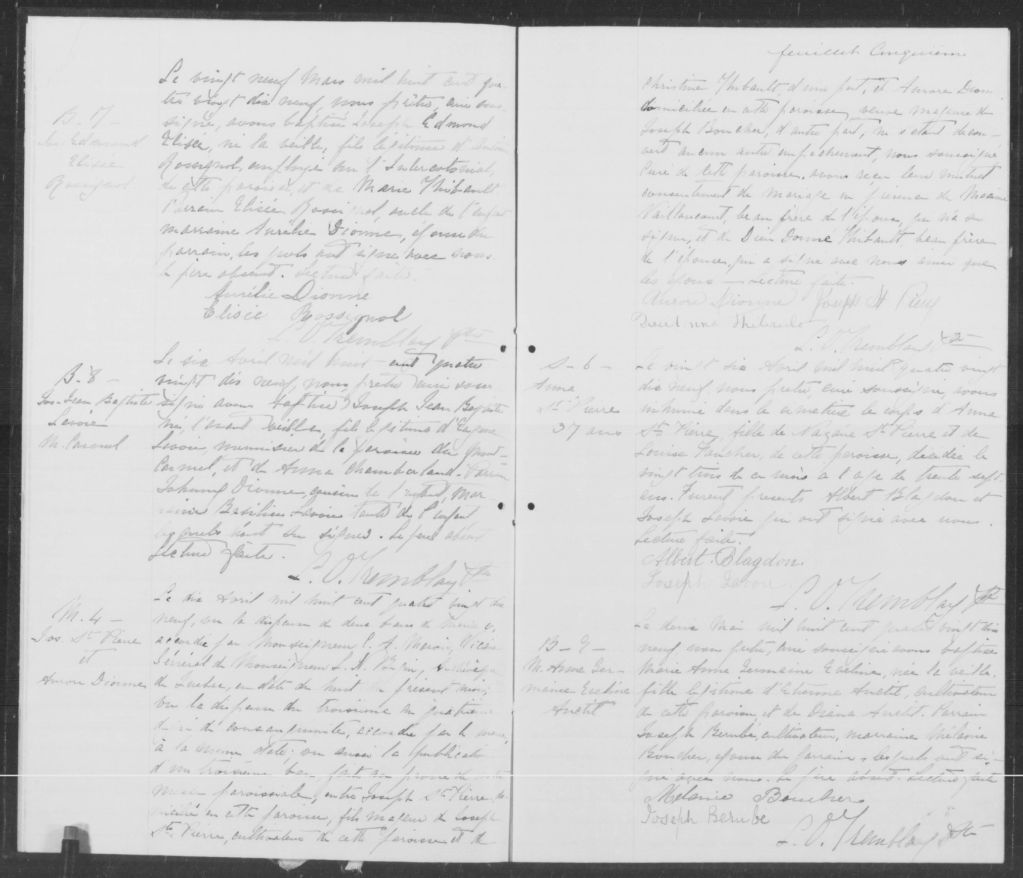 B. 7
Jos. Edmond
Elisée
Rossignol
Le vingt neuf Mars mil huit cent qua-
tre vingt dix neuf, nous prêtre, curé sous-
signé, avons baptisé Joseph Edmond
Elisée, né la veille, fils légitime d'
Rossignol, employé sur l'Intercolonial,
de cette paroisse, et de Marie Thibault
Parrain Elisée Rossignol, oncle de l'enfant
marraine Aurélie Dionne, épouse du
parrain, les quels ont signé avec nous
Le père absent. Lecture faite.
Aurélie Dionne
Elisée Rossignol
L. O. Tremblay Ptre
B. 8 -
Jos. Jean Baptiste
Lavoie
M. Carmel
Le six Avril mil huit cent quatre
vingt dix neuf, nous prêtre curé sous
signé avons baptisé Joseph Jean Baptiste
né, l'avant veille, fils légitime d'
Lavoie, meunier de la paroisse du Mont-
Carmel, et de Anna Chamberland. Parrain
Johnny Dionne, cousin de l'enfant, mar-
raine Basilisse Lavoie tante de l'enfant
lesquels n'ont su signer. Le père absent
Lecture faite.
L. O. Tremblay Ptre
M. 4 -
Jos St Pierre
et
Aurore Dionne
Le dix Avril mil huit cent quatre vingt dix
neuf, vu la dispense de deux bans de mariage
accordée par Monseigneur C. A. Marois, Vicaire
Général de Monseigneur L. N. Bégin, Archevêque
de Québec, en date du huit du présent mois;
vu la dispense du troisième au quatrième
degré de consanguinité, accordée par le même,
à la même date; vu aussi la publication
d'un troisième ban faite au prône de notre
messe paroissiale, entre Joseph St Pierre, do-
micilié en cette paroisse, fils majeur de Joseph
St Pierre, cultivateur de cette paroisse et de
feuillet Cinquième
Christine Thibault d'une part, et Aurore Dionne
domiciliée en cette paroisse, veuve majeure de
Joseph Boucher, d'autre part, ne s'étant décou-
vert aucun autre empêchement, nous soussigné
Curé de cette paroisse, avons reçu leur mutuel
consentement de mariage en présence de
Vaillancourt, beau frère de l'époux, qui n'a su
signer, et de Dieu Donné Thibault, beau frère
de l'épouse, qui a signé avec nous ainsi que
les époux - Lecture faite.
Aurore Dionne Joseph St Pierre
L. O. Tremblay Ptre
S - 6 -
Anna
St Pierre
37 ans
Le vingt six Avril mil huit quatre vingt
dix neuf, nous prêtre, curé soussigné, avons
inhumé dans le cimetière le corps d'Anna
St Pierre, fille de Nazaire St Pierre et de
Louise Paucher, de cette paroisse, décédée le
vingt trois de ce mois à l'age de trente sept
ans. Furent présents Albert Blagdon et
Joseph Lavoie qui ont signé avec nous.
Lecture faite.
Albert Blagdon.
Joseph Lavoie.
L. O. Tremblay Ptre
B - 9 -
M. Anne Ger-
maine Exeline
Anctil
Le deux Mai mil huit cent quatre vingt dix
neuf nous prêtre, curé soussigné avons baptisé
Marie Anne Germaine Exeline, née la veille,
fille légitime d'Etienne Anctil, cultivateur
de cette paroisse, et de Diana Anctil. Parrain
Joseph Berubé, cultivateur, marraine Mélanie
Boucher, épouse du parrain, lesquels ont si-
gné avec nous. Le père absent. Lecture faite
Mélanie Boucher
Joseph Berubé
L. O. Tremblay Ptre